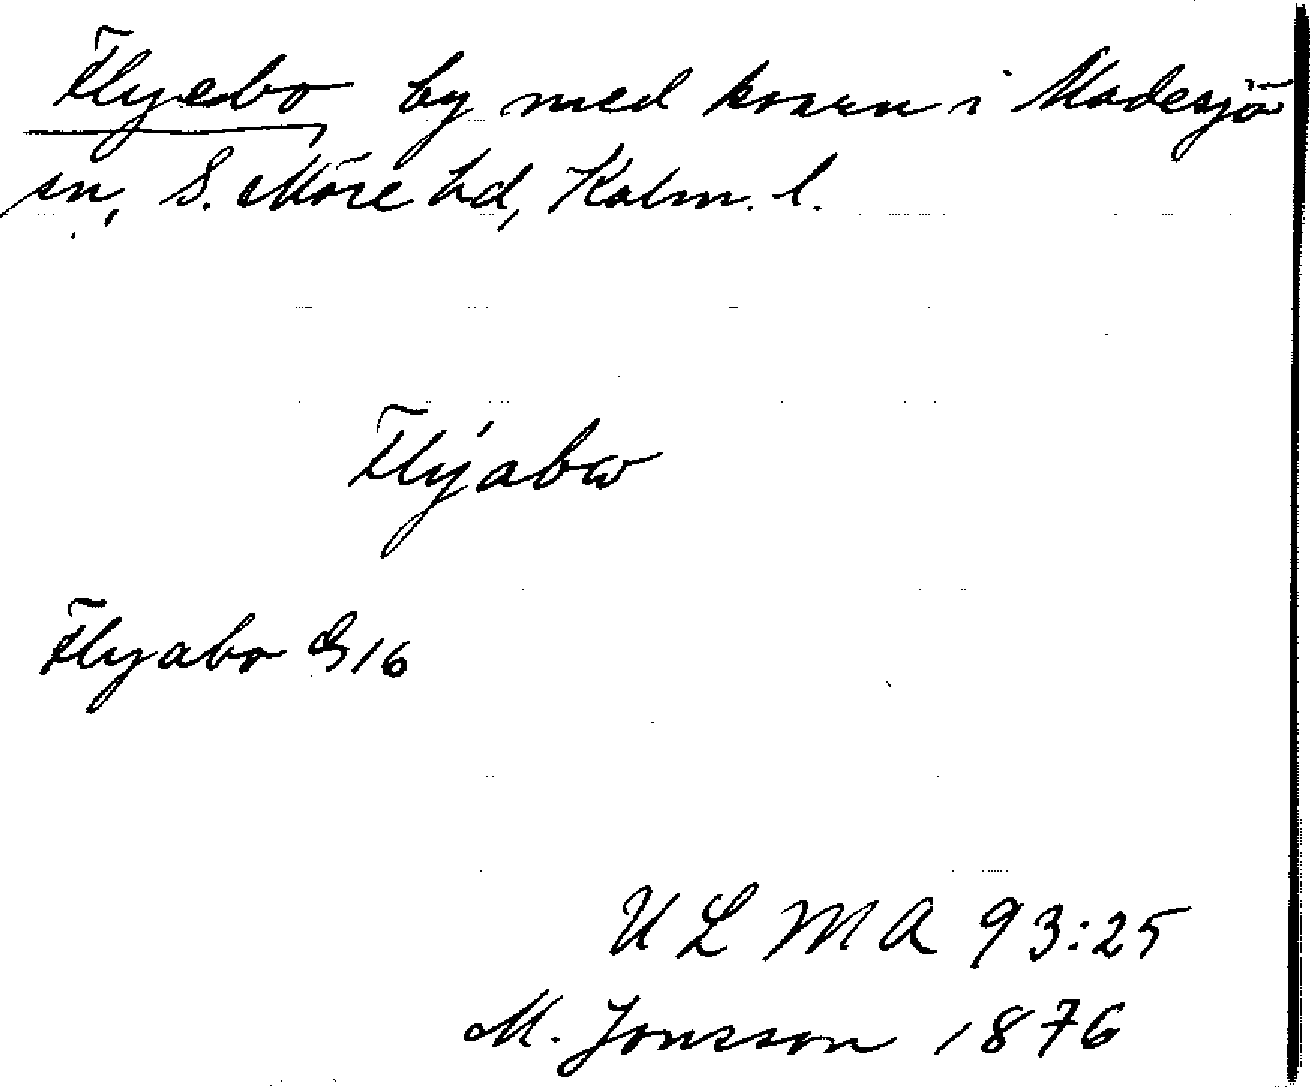 Flyebo, by med kvarn i Madesjö
sn, S. Möre hd, Kalm. l.
Flýabω
Flyabo G16
ULMA 93:25
M. Jonsson 1876